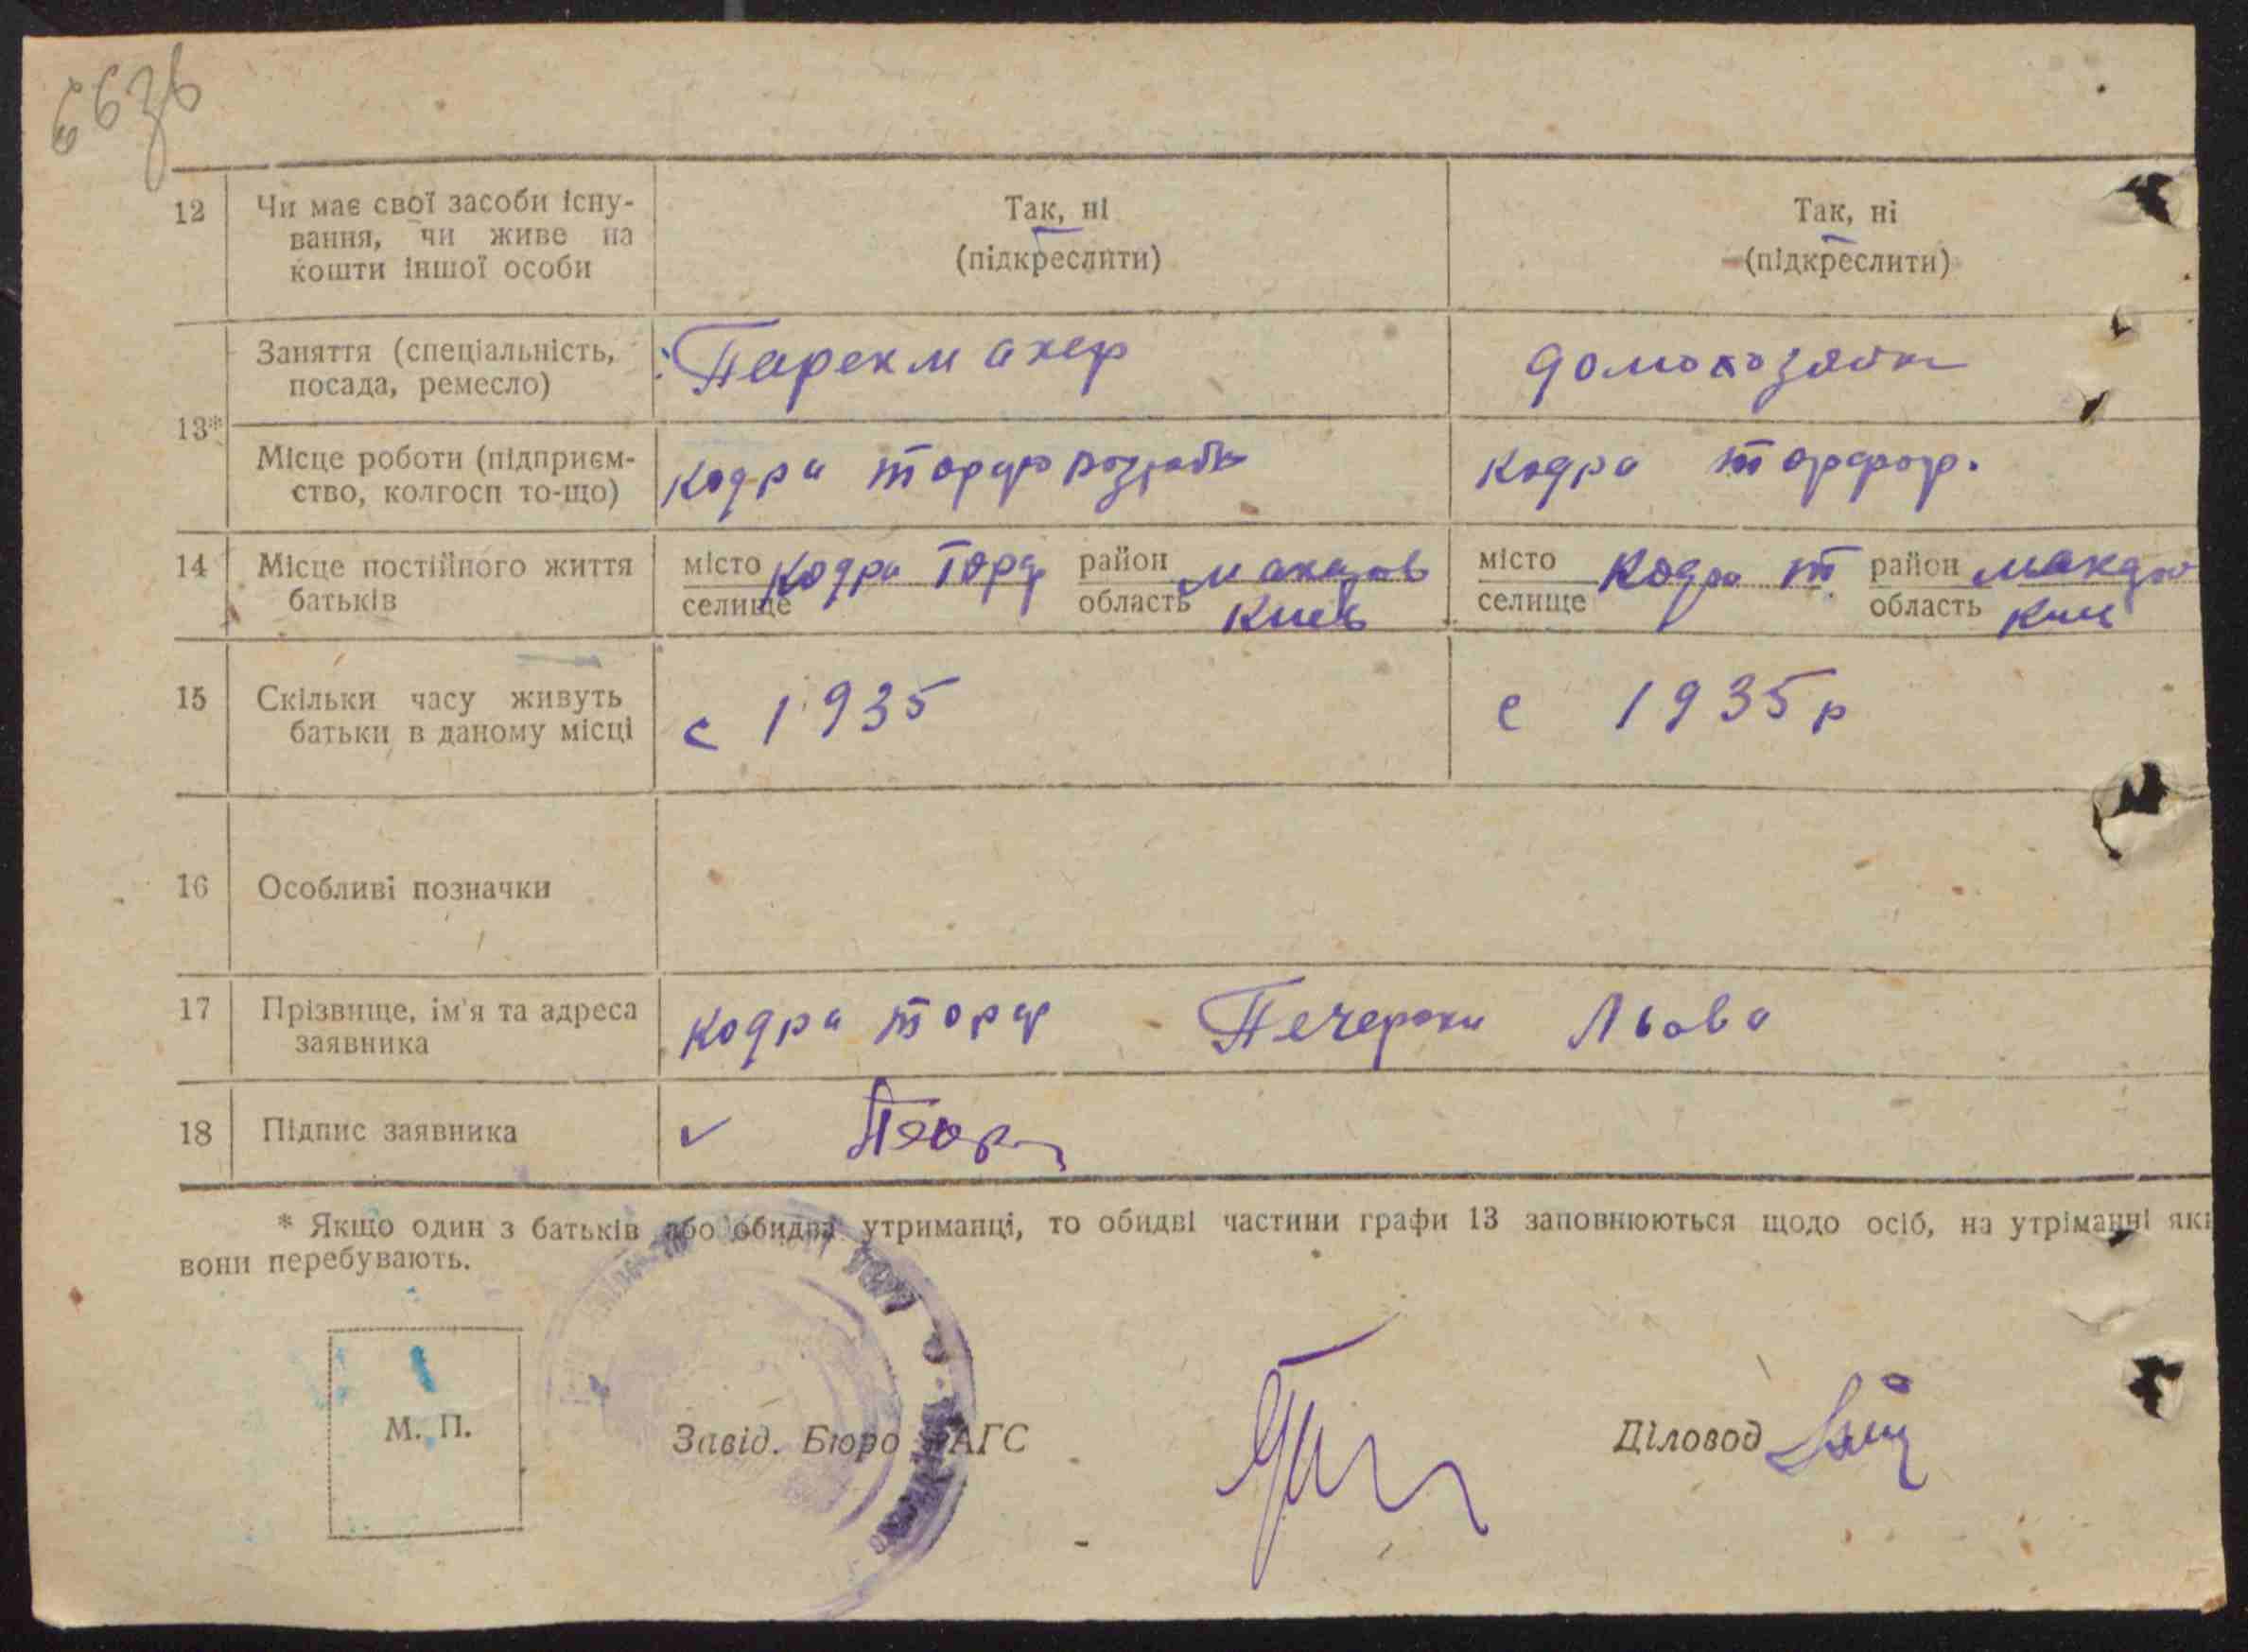 12
Чи має свої засоби існу-
вання, чи живе на
кошти іншої особи
Так, ні
(підкреслити)
Так, ні
(підкреслити)
13*
Заняття (спеціальність,
посада, ремесло)
Парекмахер
домохозяйк
Місце роботи (підприєм-
ство, колгосп то-що)
Кодра
Кодра торфор.
14
Місце постійного життя
батьків
місто
селище
Кодра Торф
район
область
Макаров
Киев
місто
селище
Кодра т.
район
область
15
Скільки часу живуть
батьки в даному місці
с 1935
с 1935 р
16
Особливі позначки
17
Прізвище, ім'я та адреса
заявника
Кодра торф Льова
18
Підпис заявника
* Якщо один з батьків або обидва утриманці, то обидві частини графи 13 заповнюються щодо осіб, на утріманні які
вони перебувають.
М. П.
Завід. Бюро ЗАГС
Діловод